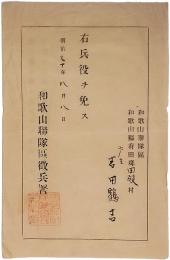 和歌山聯隊區
和歌山縣有田郡田殿村
吉田鶴吉
右兵役ヲ免ス
明治三十年八月八日
和歌山聯隊區徴兵署